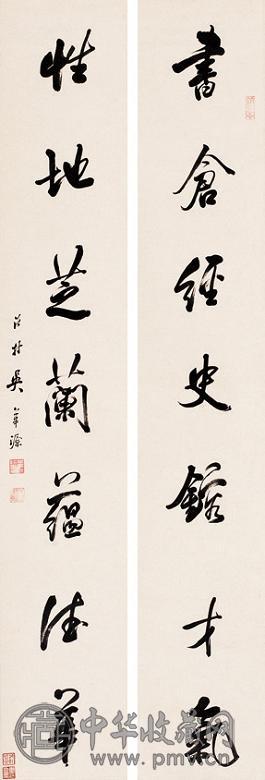 書倉經史鎔才氣
性地芝蘭蘊德華
村吳
中华收藏网
www.pmw.cn